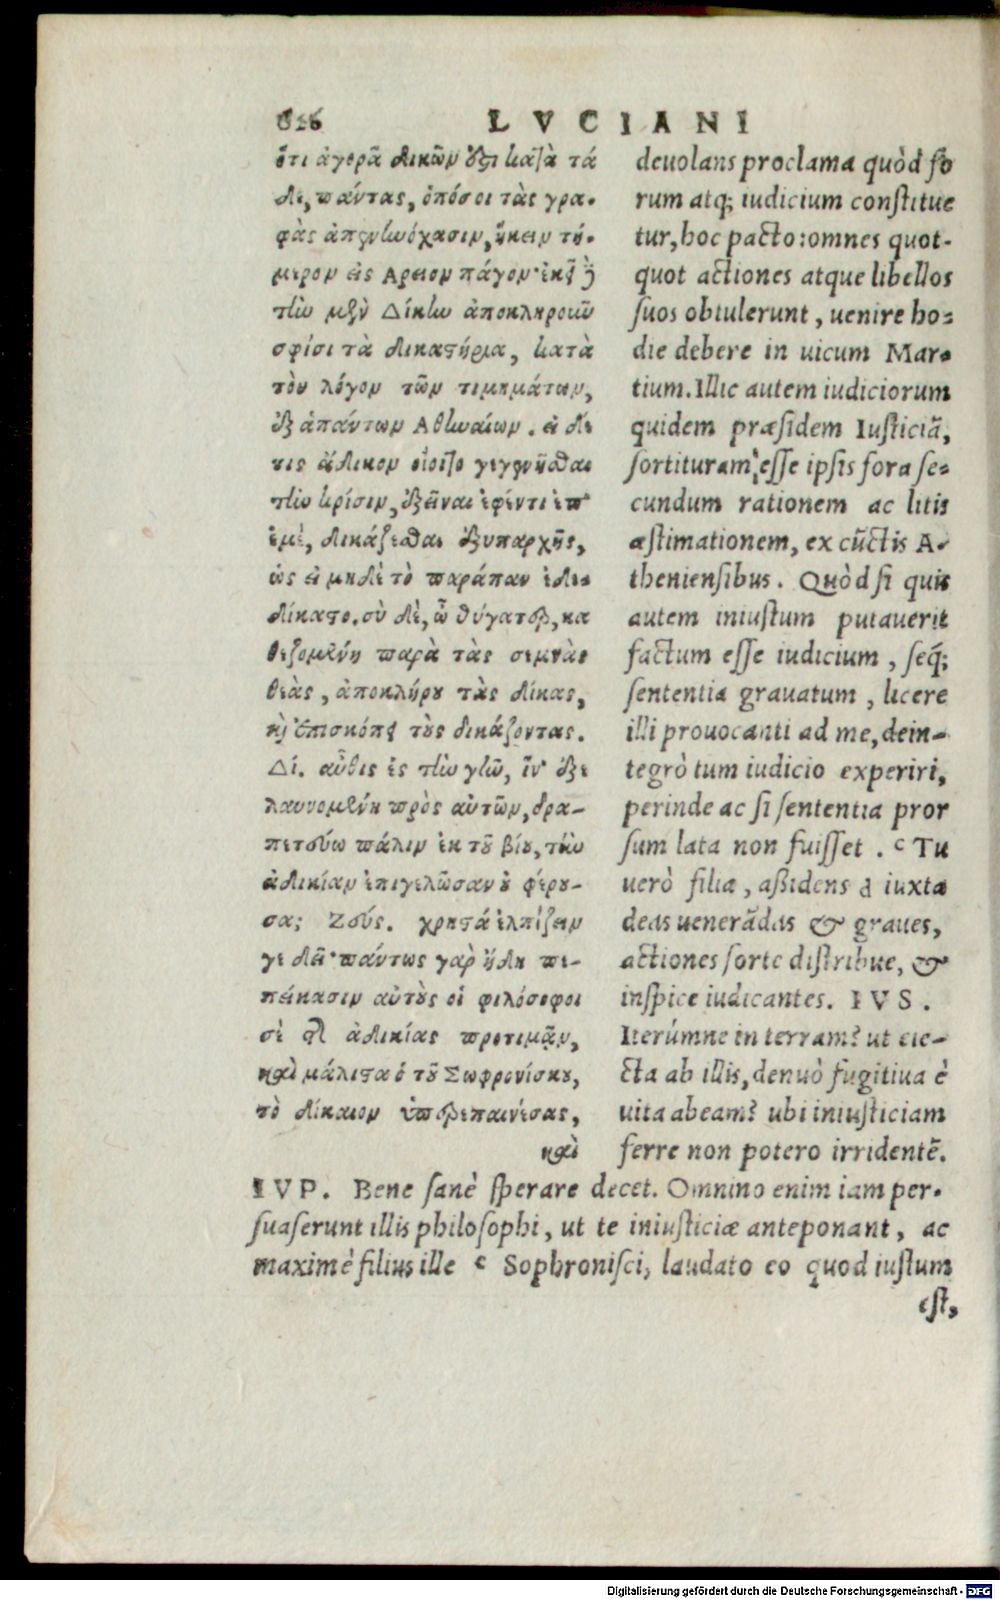 626 LVCIANI
ὅτι ἀγορὰν δικῶν ἔσται κατὰ τά
δε, πάντας, ὁπόσοι τὰς γρα-
φὰς ἀπενηνόχασιν, ἥκειν τή-
μερον εἰς Αρειον πάγον· ἐκεῖ δὲ
τὴν μὲν Δίκην ἀποκληροῦν
σφίσι τὰ δικαστήρια, κατὰ
τὸν λόγον τῶν τιμημάτων,
ἐξ ἁπάντων Αθηναίων. εἰ δέ
τις ἄδικον οἴοιτο γεγενῆσθαι
τὴν κρίσιν, ἐξεῖναι ἐφέντι ἐπ'
ἐμὲ, δικάζεσθαι ἐξυπαρχῆς,
ὡς εἰ μηδὲ τὸ παράπαν ἐδε-
δίκαστο. σὺ δὲ, ὦ θύγατερ, κα
θεζομένη παρὰ τὰς σεμνὰς
θεὰς, ἀποκλήρου τὰς δίκας,
καὶ ἐπισκόπει τοὺς δικάζοντας.
Δί. αὖθις ἐς τὴν γῆν, ἵν' ἐξε
λαυνομένη πρὸς αὐτῶν, δρα-
πετεύω πάλιν ἐκ τοῦ βίου, τὴν
ἀδικίαν ἐπιγελῶσαν οὐ φέρου-
σα; Ζεύς. χρηστά ἐλπίζειν
γε δεῖ· πάντως γὰρ ἤδη πε-
πείκασιν αὐτοὺς οἱ φιλόσοφοι
σὲ τῆς ἀδικίας προτιμᾷν,
καὶ μάλιστα ὁ τοῦ Σωφρονίσκου,
τὸ δίκαιον ὑπερεπαινέσας,
καὶ
deuolans proclama quòd fo
rum atq; iudicium constitue
tur, hoc pacto: omnes quot-
quot actiones atque libellos
suos obtulerunt, uenire ho-
die debere in uicum Mar-
tium. Illic autem iudiciorum
quidem præsidem Iusticiã,
sortituram esse ipsis fora se-
cundum rationem ac litis
æstimationem, ex cũctis A-
theniensibus. Quòd si quis
autem iniustum putauerit
factum esse iudicium, seq́;
sententia grauatum, licere
illi prouocanti ad me, dein-
tegrò tum iudicio experiri,
perinde ac si sententia pror
sum lata non fuisset. c Tu
uerò filia, aßidens d iuxta
deas uenerãdas & graues,
actiones sorte distribue, &
inspice iudicantes. IVS.
Iterúmne in terram? ut eie-
cta ab illis, denuò fugitiua è
uita abeam? ubi iniusticiam
ferre non potero irridentẽ.
IVP. Bene sanè sperare decet. Omnino enim iam per-
suaserunt illis philosophi, ut te iniusticiæ anteponant, ac
maximè filius ille c Sophronisci, laudato eo quod iustum
est,
Digitalisierung gefördert durch die Deutsche Forschungsgemeinschaft - DFG